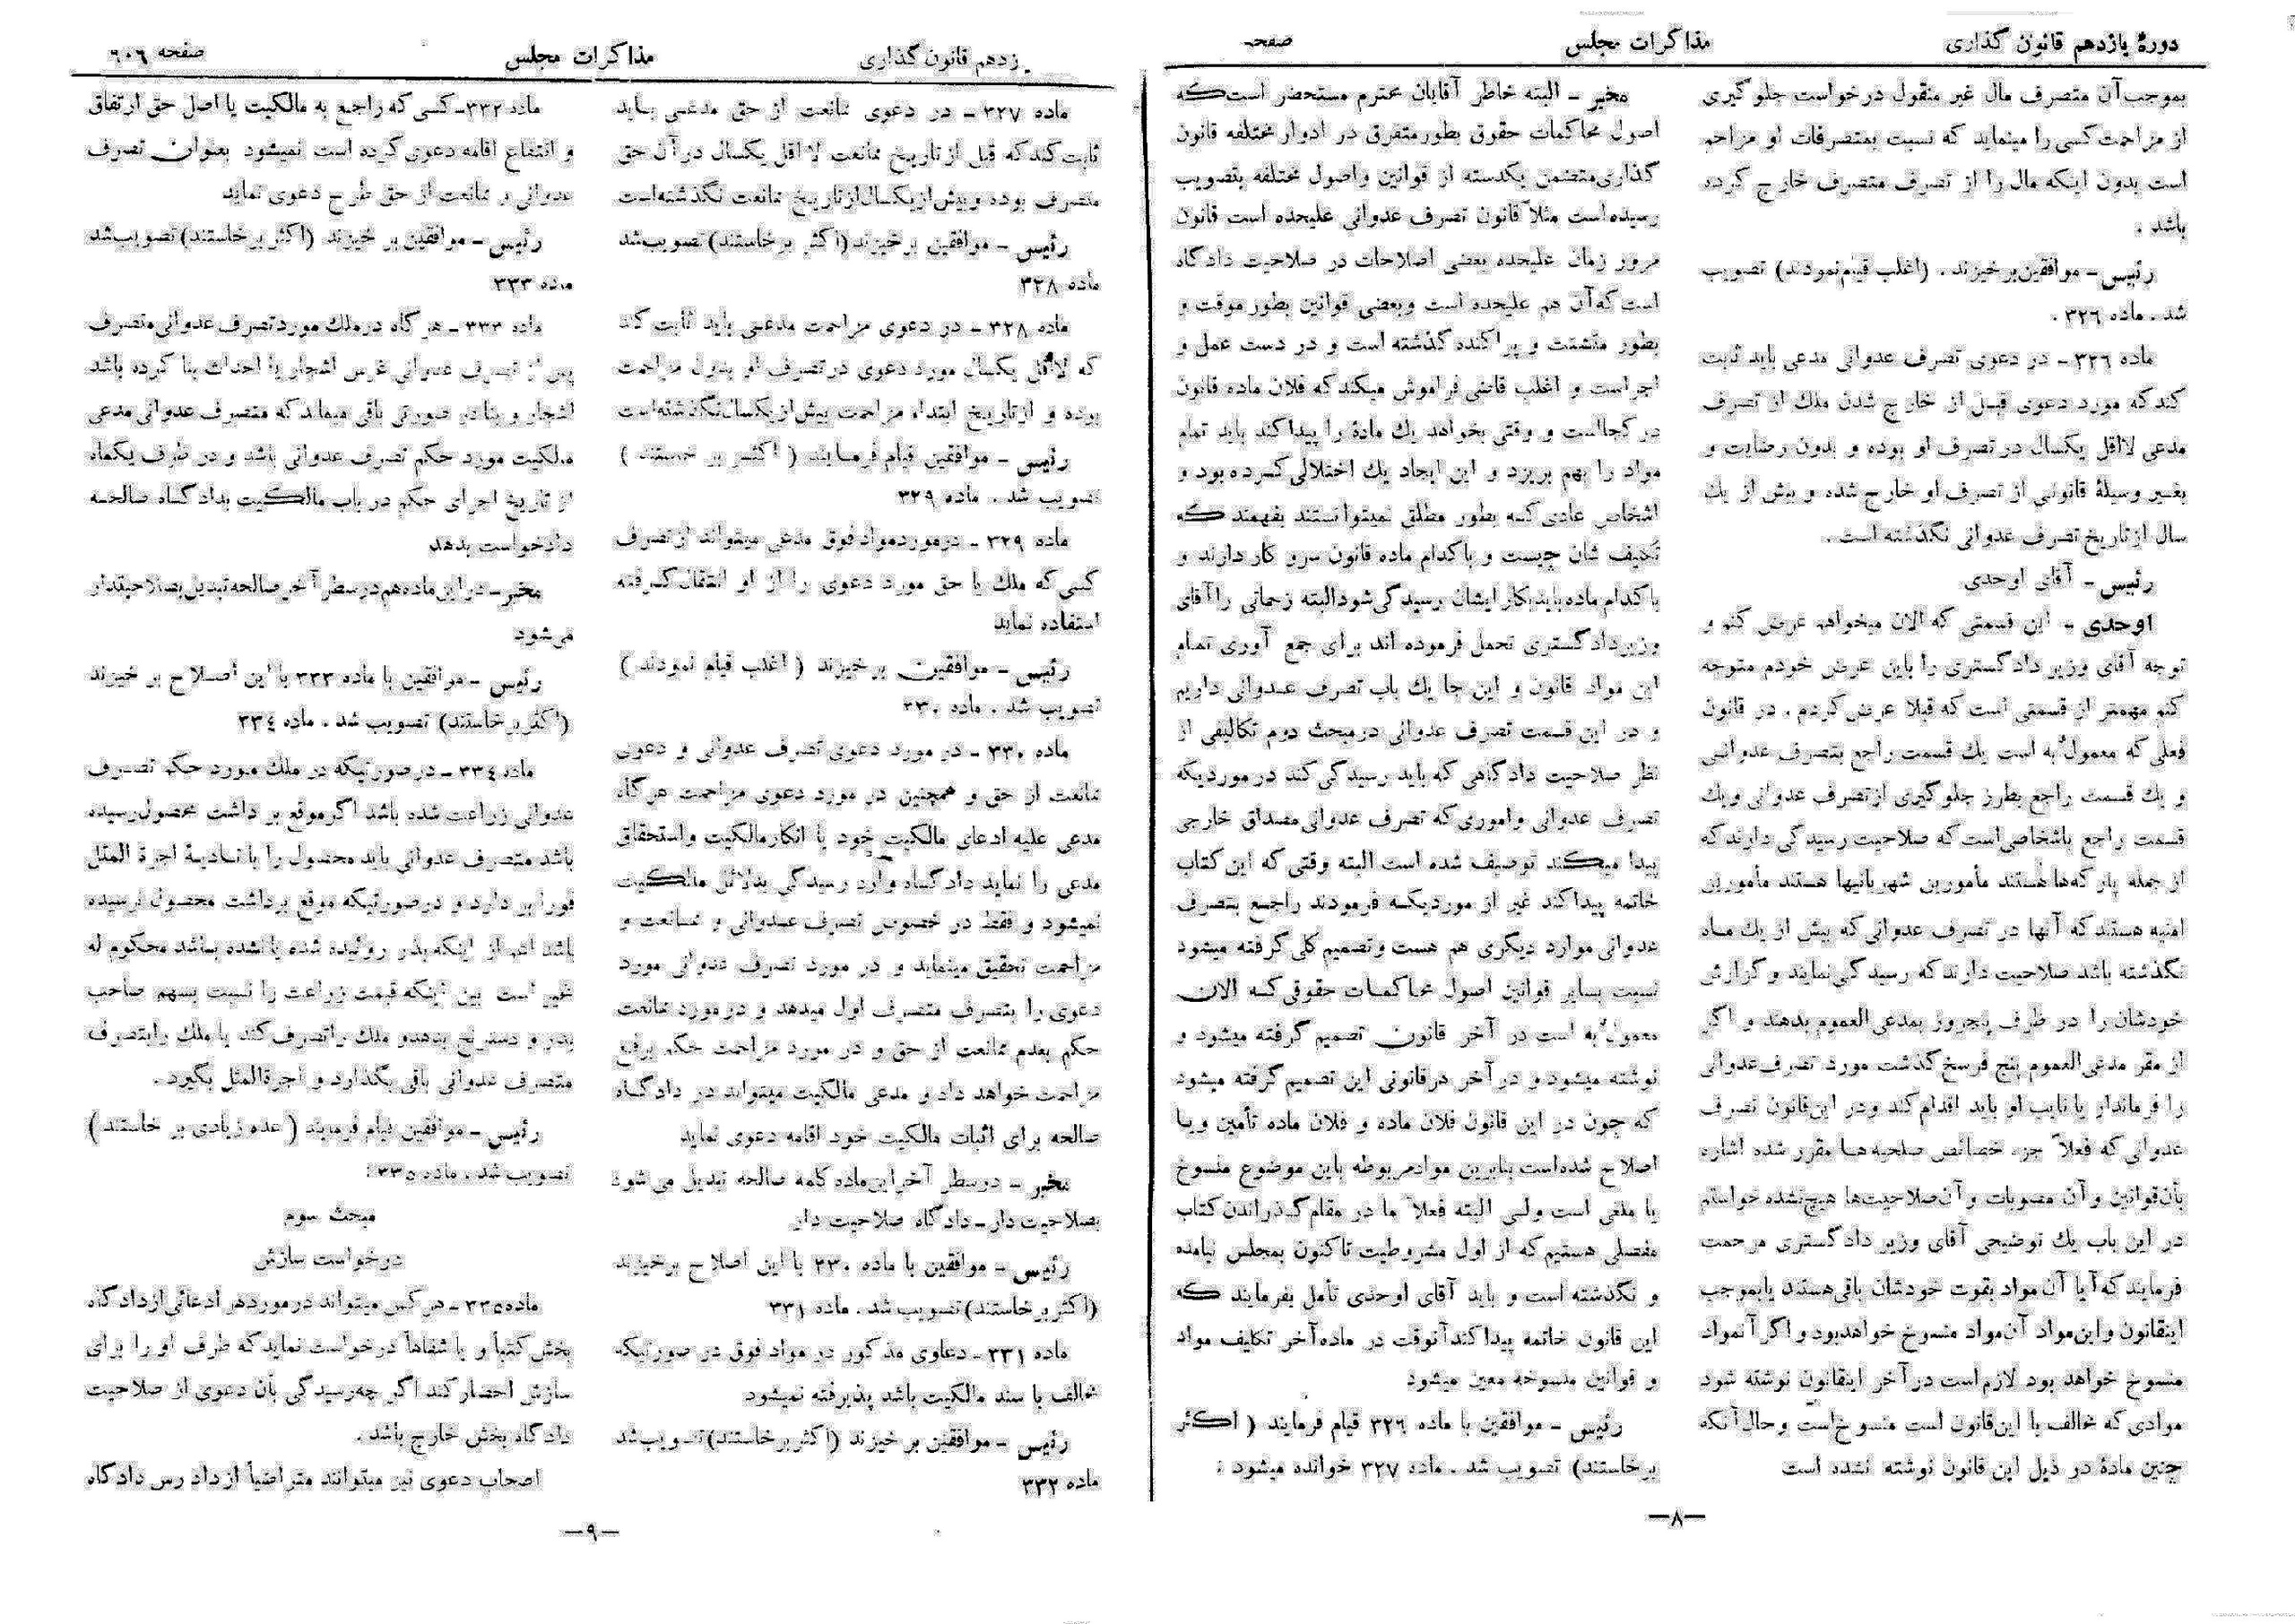 دورهٔ یازدهم قانون گذاری
مذاکرات مجلس
صفحه
بموجب آن متصرف مال غیر منقول درخواست جلوگیری
از مزاحمت کسی را مینماید که نسبت بمتصرفات او مزاحم
است بدون اینکه مال را از تصرف متصرف خارج کرده
باشد .
رئیس – موافقین برخیزند . (اغلب قیام نمودند) تصویب
شد . ماده ۳۲۶ .
ماده ۳۲۶ – در دعوی تصرف عدوانی مدعی باید ثابت
کند که مورد دعوی قبل از خارج شدن ملك از تصرف
مدعی لااقل یکسال در تصرف او بوده و بدون رضایت و
بغیر وسیلهٔ قانونی از تصرف او خارج شده و بیش از یك
سال از تاریخ تصرف عدوانی نگذشته است .
رئیس – آقای اوحدی
اوحدی – این قسمتی که الان میخواهم عرض کنم و
توجه آقای وزیر دادگستری را باین عرض خودم متوجه
کنم مهمتر از قسمتی است که قبلا عرض کردم . در قانون
فعلی که معمولٌ به است یك قسمت راجع بتصرف عدوانی
و یك قسمت راجع بطرز جلوگیری از تصرف عدوانی و یك
قسمت راجع باشخاصی است که صلاحیت رسیدگی دارند که
از جمله پارکه‌ها هستند مأمورین شهربانیها هستند مأمورین
امنیه هستند که آنها در تصرف عدوانی که بیش از یك ماه
نگذشته باشد صلاحیت دارند که رسیدگی نمایند و گزارش
خودشان را در ظرف پنجروز بمدعی العموم بدهند و اگر
از مقر مدعی العموم پنج فرسخ گذشت مورد تصرف عدوانی
را فرماندار یا نایب او باید اقدام کند و در این قانون تصرف
عدوانی که فعلاً جزء خصائص صلحیه ها مقرر شده اشاره
بآن قوانین و آن مصوبات و آن صلاحیت‌ها هیچ نشده خواستم
در این باب یك توضیحی آقای وزیر دادگستری مرحمت
فرمایند که آیا آن مواد بقوت خودشان باقی هستند یا بموجب
اینقانون و این مواد آن مواد منسوخ خواهد بود و اگر آنمواد
منسوخ خواهد بود لازم است در آخر اینقانون نوشته شود
موادی که مخالف با این قانون است منسوخ است و حال آنکه
چنین مادهٔ در ذیل این قانون نوشته نشده است
مخبر – البته خاطر آقایان محترم مستحضر است که
اصول محاکمات حقوق بطور متفرق در ادوار مختلفه قانون
گذاری متضمن یکدسته از قوانین و اصول مختلفه بتصویب
رسیده است مثلاً قانون تصرف عدوانی علیحده است قانون
مرور زمان علیحده بعضی اصلاحات در صلاحیت دادگاه
است که آن هم علیحده است و بعضی قوانین بطور موقت و
بطور متشتت و پراکنده گذشته است و در دست عمل و
اجراست و اغلب قاضی فراموش میکند که فلان ماده قانون
در کجاست و وقتی بخواهد یك مادهٔ را پیدا کند باید تمام
مواد را بهم بریزد و این ایجاد یك اختلالی کرده بود و
اشخاص عادی که بطور مطلق نمیتوانستند بفهمند که
تکلیف شان چیست و با کدام ماده قانون سرو کار دارند و
با کدام ماده باید بکار ایشان رسیدگی شود البته زحماتی را آقای
وزیر دادگستری تحمل فرموده اند برای جمع آوری تمام
این مواد قانون و این جا یك باب تصرف عدوانی داریم
و در این قسمت تصرف عدوانی در مبحث دوم تکالیفی از
نظر صلاحیت دادگاهی که باید رسیدگی کند در موردیکه
تصرف عدوانی و اموری که تصرف عدوانی مصداق خارجی
پیدا میکند توصیف شده است البته وقتی که این کتاب
خاتمه پیدا کند غیر از موردیکه فرمودند راجع بتصرف
عدوانی موارد دیگری هم هست و تصمیم کلی گرفته میشود
نسبت بسایر قوانین اصول محاکمات حقوقی که الان
معمولٌ به است در آخر قانون تصمیم گرفته میشود و
نوشته میشود و در آخر در قانونی این تصمیم گرفته میشود
که چون در این قانون فلان ماده و فلان ماده تأمین و یا
اصلاح شده است بنابرین مواد مربوطه باین موضوع منسوخ
یا ملغی است ولی البته فعلاً ما در مقام گذراندن کتاب
مفصلی هستیم که از اول مشروطیت تاکنون بمجلس نیامده
و نگذشته است و باید آقای اوحدی تأمل بفرمایند که
این قانون خاتمه پیدا کند آنوقت در ماده آخر تکلیف مواد
و قوانین منسوخه معین میشود
رئیس – موافقین با ماده ۳۲۶ قیام فرمایند ( اکثر
برخاستند) تصویب شد . ماده ۳۲۷ خوانده میشود :
—۸—
زدهم قانون گذاری
مذاکرات مجلس
صفحه ۶۰۶
ماده ۳۲۷ – در دعوی ممانعت از حق مدعی باید
ثابت کند که قبل از تاریخ ممانعت لااقل یکسال در آن حق
متصرف بوده و بیش از یکسال از تاریخ ممانعت نگذشته است
رئیس – موافقین برخیزند (اکثر برخاستند) تصویب شد
ماده ۳۲۸
ماده ۳۲۸ – در دعوی مزاحمت مدعی باید ثابت کند
که لااقل یکسال مورد دعوی در تصرف او بدون مزاحمت
بوده و از تاریخ ابتداء مزاحمت بیش از یکسال نگذشته است
رئیس – موافقین قیام فرمایند ( اکثر بر خستند )
تصویب شد . ماده ۳۲۹
ماده ۳۲۹ – در مورد مواد فوق مدعی میتواند از تصرف
کسی که ملك یا حق مورد دعوی را از او انتقال گرفته
استفاده نماید
رئیس – موافقین برخیزند ( اغلب قیام نمودند )
تصویب شد . ماده ۳۳۰
ماده ۳۳۰ – در مورد دعوی تصرف عدوانی و دعوی
ممانعت از حق و همچنین در مورد دعوی مزاحمت هرگاه
مدعی علیه ادعای مالکیت خود یا انکار مالکیت و استحقاق
مدعی را نماید دادگاه وارد رسیدگی بدلائل مالکیت
نمیشود و فقط در خصوص تصرف عدوانی و ممانعت و
مزاحمت تحقیق مینماید و در مورد تصرف عدوانی مورد
دعوی را بتصرف متصرف اول میدهد و در مورد ممانعت
حکم بعدم ممانعت از حق و در مورد مزاحمت حکم برفع
مزاحمت خواهد داد و مدعی مالکیت میتواند در دادگاه
صالحه برای اثبات مالکیت خود اقامه دعوی نماید
مخبر – در سطر آخر این ماده کلمه صالحه تبدیل می شود
بصلاحیت دار – دادگاه صلاحیت دار
رئیس – موافقین با ماده ۳۳۰ با این اصلاح برخیزند
(اکثر برخاستند) تصویب شد . ماده ۳۳۱
ماده ۳۳۱ – دعاوی مذکور در مواد فوق در صورتیکه
مخالف با سند مالکیت باشد پذیرفته نمیشود
رئیس – موافقین بر خیزند (اکثر برخاستند) تصویب شد
ماده ۳۳۲
ماده ۳۳۲ – کسی که راجع به مالکیت یا اصل حق ارتفاق
و انتفاع اقامه دعوی کرده است نمیشود بعنوان تصرف
عدوانی و ممانعت از حق طرح دعوی نماید
رئیس – موافقین بر خیزند (اکثر برخاستند) تصویب شد
ماده ۳۳۳
ماده ۳۳۳ – هرگاه در ملك مورد تصرف عدوانی متصرف
پس از تصرف عدوانی غرس اشجار یا احداث بنا کرده باشد
اشجار و بنا در صورتی باقی میماند که متصرف عدوانی مدعی
مالکیت مورد حکم تصرف عدوانی باشد و در ظرف یکماه
از تاریخ اجرای حکم در باب مالکیت بدادگاه صالحه
دادخواست بدهد
مخبر – در این ماده هم در سطر آخر صالحه تبدیل بصلاحیتدار
می‌شود
رئیس – موافقین با ماده ۳۳۳ با این اصلاح بر خیزند
(اکثر برخاستند) تصویب شد . ماده ۳۳۴
ماده ۳۳۴ – در صورتیکه در ملك مورد حکم تصرف
عدوانی زراعت شده باشد اگر موقع برداشت محصول رسیده
باشد متصرف عدوانی باید محصول را با تادیهٔ اجرة المثل
فوراً بر دارد و در صورتیکه موقع برداشت محصول نرسیده
باشد اعم از اینکه بذر روئیده شده یا نشده باشد محکوم له
مخیر است بین اینکه قیمت زراعت را نسبت بسهم صاحب
بذر و دسترنج بدهد و ملك را تصرف کند یا ملك را بتصرف
متصرف عدوانی باقی بگذارد و اجرة المثل بگیرد .
رئیس – موافقین قیام فرمایند (عده زیادی بر خاستند)
تصویب شد . ماده ۳۳۵ :
مبحث سوم
درخواست سازش
ماده ۳۳۵ – هر کس میتواند در مورد هر ادعائی از دادگاه
بخش کتباً و یا شفاهاً درخواست نماید که طرف او را برای
سازش احضار کند اگر چه رسیدگی بآن دعوی از صلاحیت
دادگاه بخش خارج باشد .
اصحاب دعوی نیز میتوانند متراضیاً از داد رس دادگاه
—۹—